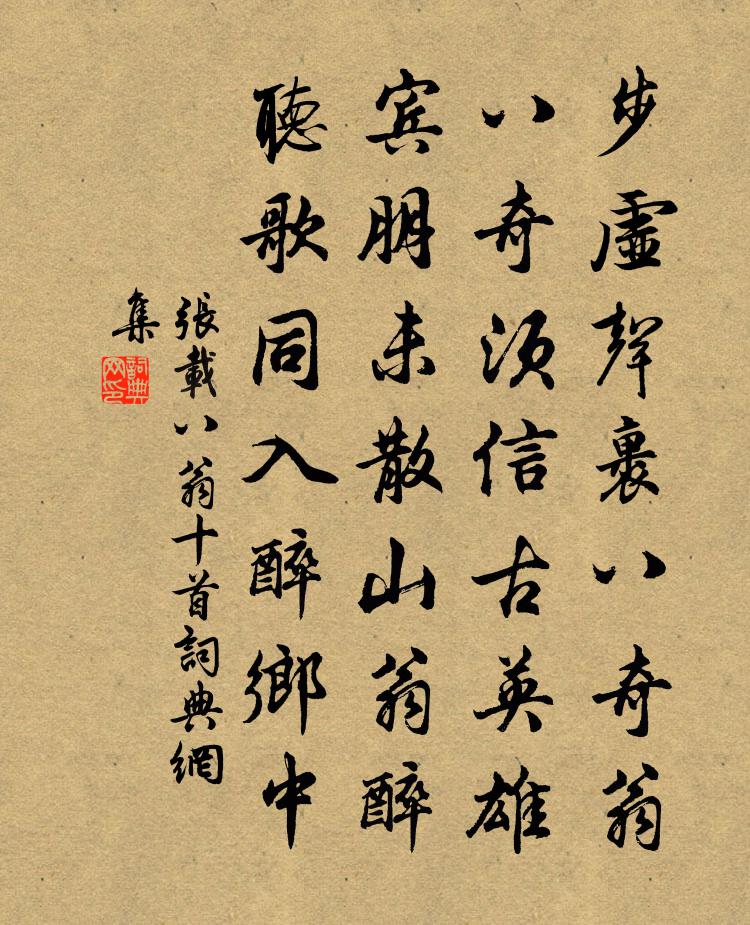 步虛聲裏八奇翁
八奇須信古英雄
賓朋未散山翁醉
聽歌同入醉鄉中
張載八翁十首詞典網
集
詞典
网印